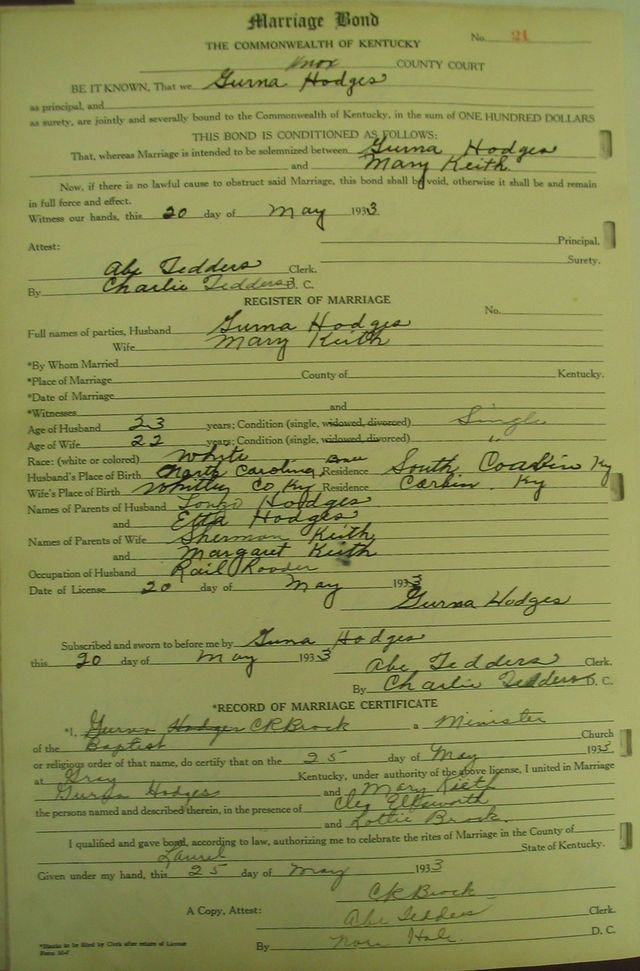 Marriage Bond
No. 21
THE COMMONWEALTH OF KENTUCKY
Knox COUNTY COURT
BE IT KNOWN, That we Gurna Hodges
as principal, and
as surety, are jointly and severally bound to the Commonwealth of Kentucky, in the sum of ONE HUNDRED DOLLARS
THIS BOND IS CONDITIONED AS FOLLOWS:
That, whereas Marriage is intended to be solemnized between Gurna Hodges
and Mary Keith
Now, if there is no lawful cause to obstruct said Marriage, this bond shall be void, otherwise it shall be and remain
in full force and effect.
Witness our hands, this 20 day of May 1933
Principal.
Attest:
Surety.
Abe Tedders Clerk.
By Charlie Tedders D. C.
REGISTER OF MARRIAGE
No.
Full names of parties, Husband Gurna Hodges
Wife Mary Keith
*By Whom Married
*Place of Marriage County of Kentucky.
*Date of Marriage
*Witnesses and
Age of Husband 23 years; Condition (single, widowed, divorced) Single
Age of Wife 22 years; Condition (single, widowed, divorced) "
Race: (white or colored) White
Husband's Place of Birth North Carolina Residence South Coarbin Ky
Wife's Place of Birth Whitley Co Ky Residence Corbin Ky
Names of Parents of Husband Hodges
and Etta Hodges
Names of Parents of Wife Sherman Keith
and Margaret Keith
Occupation of Husband Rail Roader
Date of License 20 day of May 1933
Gurna Hodges
Subscribed and sworn to before me by Guna Hodges
this 20 day of May 1933
Abe Tedders Clerk.
By Charlie Tedders D. C.
*RECORD OF MARRIAGE CERTIFICATE
*I, Gurna Hodges CR Brock a Minister
of the Baptist Church
or religious order of that name, do certify that on the 25 day of May 1933
at Gray Kentucky, under authority of the above license, I united in Marriage
Gurna Hodges and Mary Kieth
the persons named and described therein, in the presence of Cleg Ellsworth
and Lottie Brock.
I qualified and gave bond, according to law, authorizing me to celebrate the rites of Marriage in the County of
Laurel State of Kentucky.
Given under my hand, this 25 day of May 1933
CR Brock
A Copy, Attest: Abe Tedders Clerk.
By Nora Hale. D. C.
*Blanks to be filed by Clerk after return of License